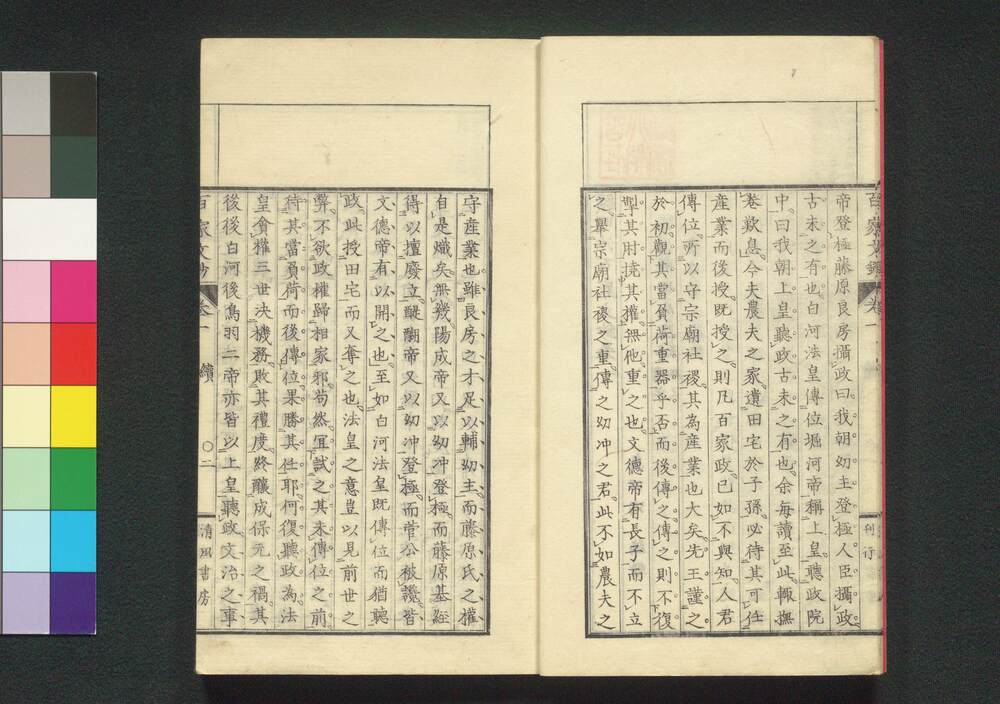 帝登極藤原良房攝政曰我朝幼主登極人臣攝政
古未之有也白河法皇傳位堀河帝稱上皇聽政院
中曰我朝上皇聽政古未之有也余每讀至此輙撫
卷歎息今夫農夫之家遺田宅於子孫必待其可任
產業而後授既授之則凡百家政已如不與知人君
傳位所以守宗廟社稷其為產業也大矣先王謹之
於初觀其當負荷重器乎否而後傳之傳之則不復
掣其肘撓其權無他重之也文德帝有長子而不立
之舉宗廟社稷之重傳之幼冲之君此不如農夫之
守產業也雖良房之才足以輔幼主而藤原氏之權
自是熾矣無幾陽成帝又以幼冲登極而藤原基經
得以擅廢立醍醐帝又以幼冲登極而菅公被讒皆
文德帝有以開之也至如白河法皇既傳位而猶聽
政此授田宅而又奪之也法皇之意豈以見前世之
弊不欲政權歸相家邪苟然冝試之其未傳位之前
待其當負荷而後傳位果勝其任耶何復聽政為法
皇貪權三世決機務敗其禮度終釀成保元之禍其
後後白河後鳥羽二帝亦皆以上皇聽政文治之事
百家文鈔 卷一 續 〇二 清風書房